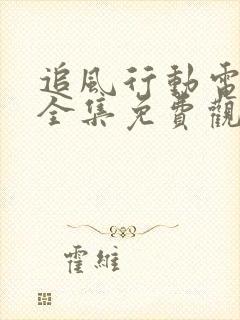 追風行動電
全集免費觀
霍維